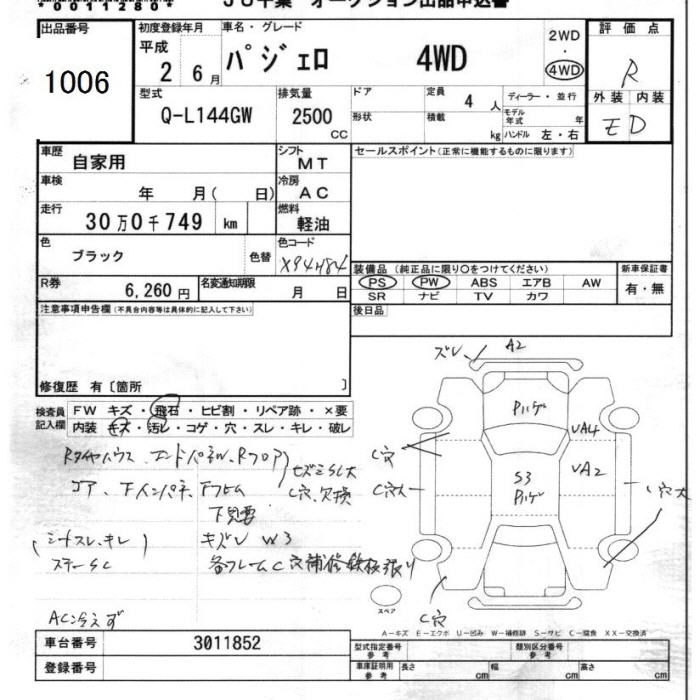 00112804
JU千葉 オークション出品申込書
出品番号 初度登録年月 車名・グレード 評価点
1006 平成 2 6月 パジェロ 4WD 2WD・4WD R
型式 排気量 ドア 定員 4 人 ディーラー・並行 外装 内装
Q-L144GW 2500 CC 形状 積載 kg モデル年式 年 ハンドル 左・右 E D
車歴 自家用 シフト MT セールスポイント(正常に機能するものに限ります)
車検 年 月( 日) 冷房 AC
走行 30万0千749 km 燃料 軽油
色 ブラック 色替 色コード X94H84
装備品 (純正品に限り○をつけてください) 新車保証書
PS PW ABS エアB AW 有・無
SR ナビ TV カワ
R券 6,260円 名変通知期限 月 日 後日品
注意事項申告欄(不具合内容等は具体的に記入して下さい)
修復歴 有〔箇所 〕
検査員記入欄 FW キズ・飛石・ヒビ割・リペア跡・×要
内装 キズ・汚レ・コゲ・穴・スレ・キレ・破レ
Rタイヤハウス、エンドパネル、Rフロア
コア、下インパネ、Fフレム
C穴、欠損
下見要
(シートスレ、キレ) キズレ W3
ステーSC 各フレームC穴補修鉄板張り
AC冷えず
ズレ A2
Pハゲ
UA4
C穴
S3
Pハゲ
UA2
C穴大
C穴
スペア
A-キズ E-エクボ U-凹み W-補修跡 S-サビ C-腐食 XX-交換済
車台番号 3011852 型式指定番号 参考 類別区分番号 参考
登録番号 車庫証明用 参考 長さ cm 幅 cm 高さ cm